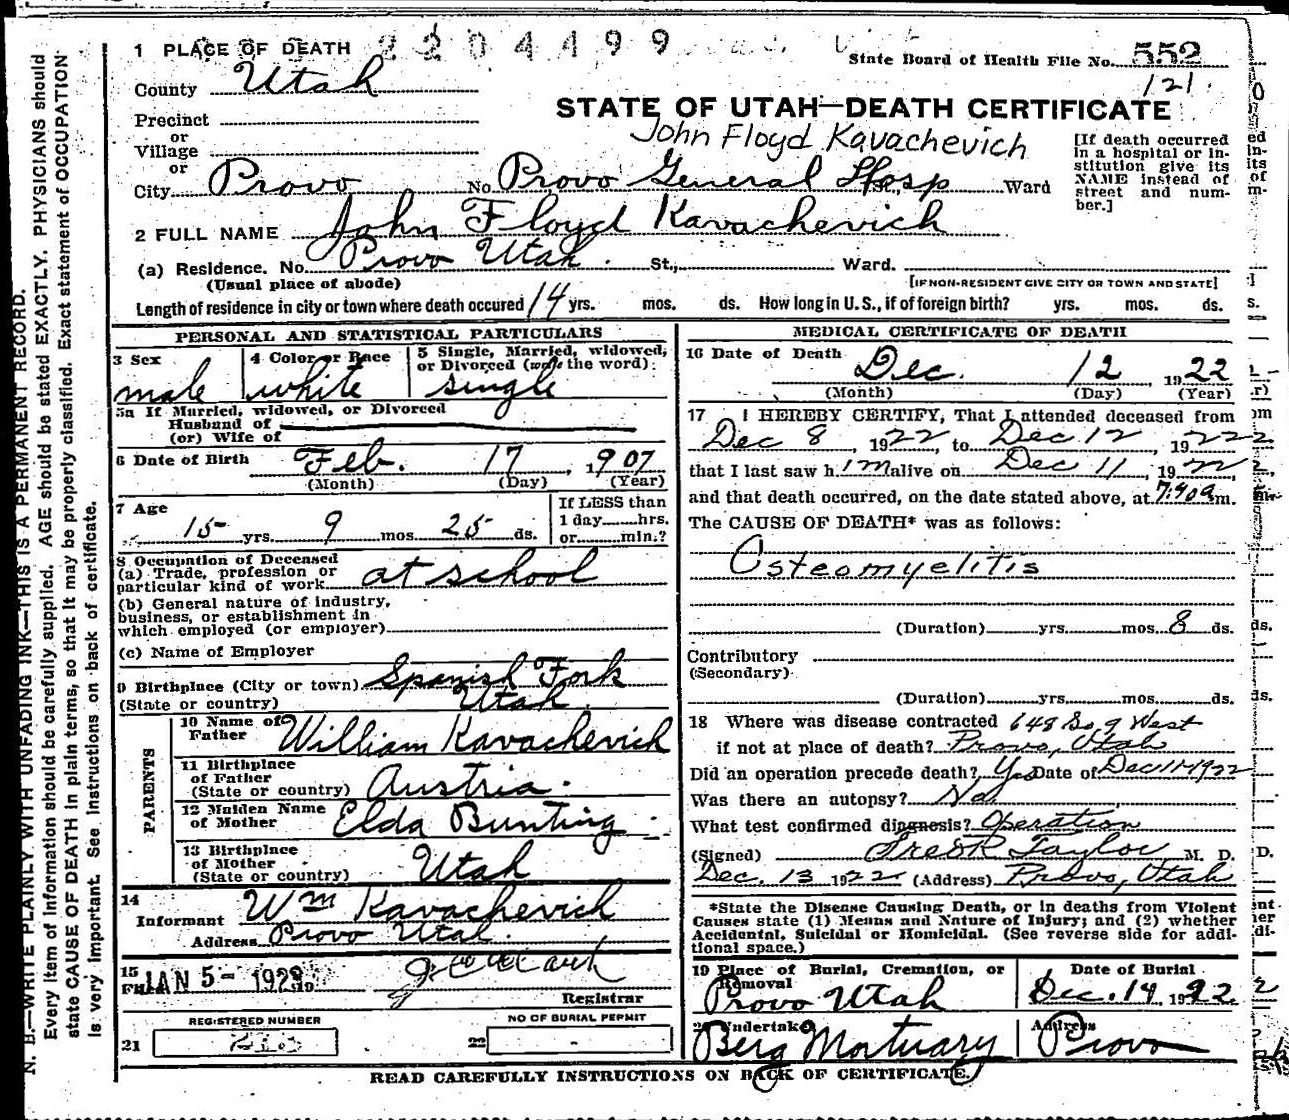 1 PLACE OF DEATH 2204499
State Board of Health File No. 552
121.
County Utah
STATE OF UTAH—DEATH CERTIFICATE
Precinct
or
Village
or
John Floyd Kavachevich
[If death occurred in a hospital or institution give its NAME instead of street and number.]
City Provo No. Provo General Hosp Ward
2 FULL NAME John Floyd Kavachevich
(a) Residence. No. Provo Utah. St., Ward.
(Usual place of abode) [IF NON-RESIDENT GIVE CITY OR TOWN AND STATE]
Length of residence in city or town where death occured 14 yrs. mos. ds. How long in U.S., if of foreign birth? yrs. mos. ds.
PERSONAL AND STATISTICAL PARTICULARS
3 Sex male
4 Color or Race white
5 Single, Married, widowed, or Divorced (write the word): single
5a If Married, widowed, or Divorced
Husband of
(or) Wife of
6 Date of Birth Feb. 17, 1907
(Month) (Day) (Year)
7 Age 15 yrs. 9 mos. 25 ds.
If LESS than
1 day hrs.
or min.?
8 Occupation of Deceased
(a) Trade, profession or
particular kind of work at school
(b) General nature of industry,
business, or establishment in
which employed (or employer)
(c) Name of Employer
9 Birthplace (City or town) Spanish Fork
(State or country) Utah
PARENTS
10 Name of Father William Kavachevich
11 Birthplace of Father (State or country) Austria.
12 Maiden Name of Mother Elda Bunting
13 Birthplace of Mother (State or country) Utah
14
Informant Wm Kavachevich
Address Provo Utah.
15
JAN 5 - 1923
Registrar
REGISTERED NUMBER
NO OF BURIAL PERMIT
21
22
MEDICAL CERTIFICATE OF DEATH
16 Date of Death
Dec. 12, 1922
(Month) (Day) (Year)
17 I HEREBY CERTIFY, That I attended deceased from
Dec 8, 1922, to Dec 12, 1922
that I last saw him alive on Dec 11, 1922
and that death occurred, on the date stated above, at 7:40 a m.
The CAUSE OF DEATH* was as follows:
Osteomyelitis
(Duration) yrs. mos. 8 ds.
Contributory
(Secondary)
(Duration) yrs. mos. ds.
18 Where was disease contracted 648 So 9 West
if not at place of death? Provo, Utah
Did an operation precede death? Yes Date of Dec 11-1922
Was there an autopsy? No
What test confirmed diagnosis? Operation
(Signed) Fred R Taylor M. D.
Dec. 13 1922 (Address) Provo, Utah
*State the Disease Causing Death, or in deaths from Violent
Causes state (1) Means and Nature of Injury; and (2) whether
Accidental, Suicidal or Homicidal. (See reverse side for addi-
tional space.)
19 Place of Burial, Cremation, or Removal
Provo Utah
Date of Burial
Dec. 14, 1922
20 Undertaker
Berg Mortuary
Address
Provo
READ CAREFULLY INSTRUCTIONS ON BACK OF CERTIFICATE.
N. B.—WRITE PLAINLY WITH UNFADING INK—THIS IS A PERMANENT RECORD.
Every item of information should be carefully supplied. AGE should be stated EXACTLY. PHYSICIANS should
state CAUSE OF DEATH in plain terms, so that it may be properly classified. Exact statement of OCCUPATION
is very important. See instructions on back of certificate.